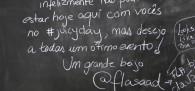 infelizmente não pude
estar hoje aqui com vocês
no #juicyday, mas desejo
a todas um ótimo evento!
Um grande beijo
@flasaad